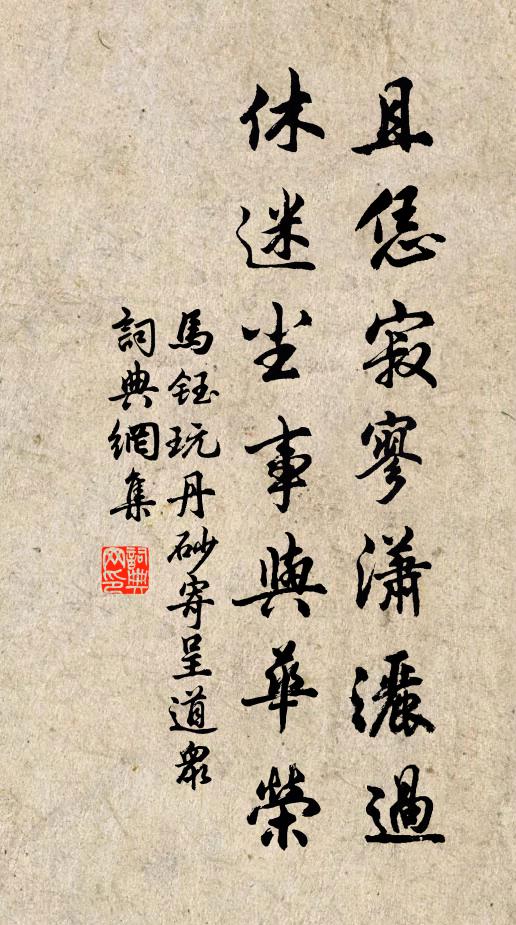 且恁寂寥瀟灑過
休迷尘事與華榮
馬鈺玩丹砂寄呈道衆
詞典網集
詞典网印